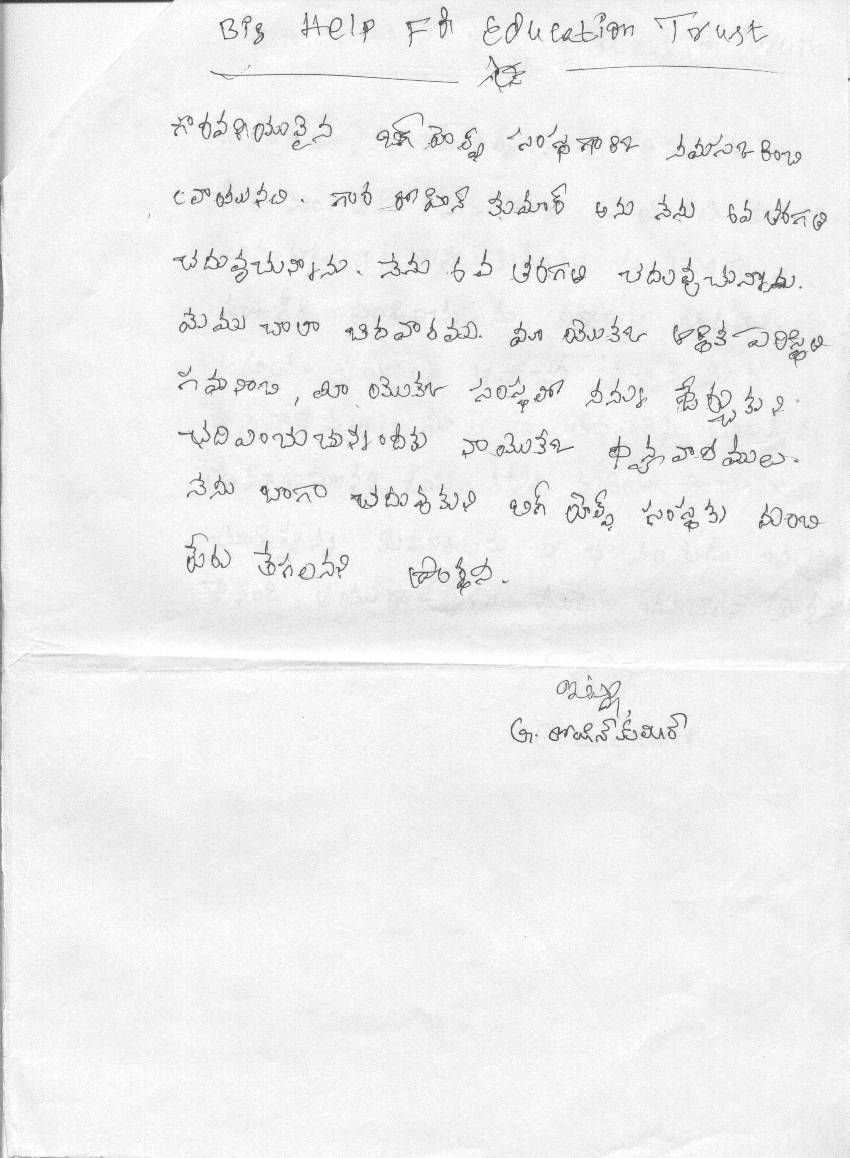 Big Help For Education Trust
గౌరవనీయులైన బిగ్ హెల్ప్ సంస్థగారికి నమస్కరించి
వ్రాయునది. గంర రోహిన్ కుమార్ అను నేను 6వ తరగతి
చదువుచున్నాను. నేను 6వ తరగతి చదువుచున్నాను.
మేము చాలా బిదవారము. మా యొక్క ఆర్థిక పరిస్థితి
గమనించి, మీ యొక్క సంస్థలో నన్ను చేర్చుకుని
చదివించుచున్నందుకు నా యొక్క ధన్యవాదములు.
నేను బాగా చదువుకుని బిగ్ హెల్ప్ సంస్థకు మంచి
పేరు తేగలనని ప్రార్థన.
ఇట్లు,
G. రోహిన్ కుమార్